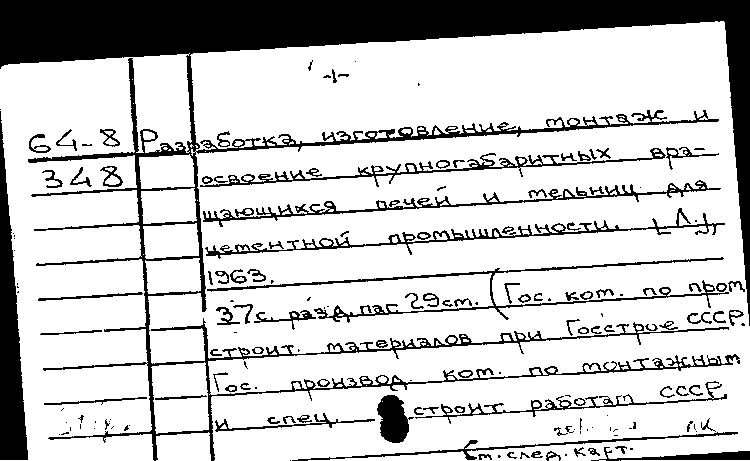 -1-
64-8 Разработка, изготовление, монтаж и
348 освоение крупногабаритных вра-
щающихся печей и мельниц для
цементной промышленности. [Л.],
1963.
37с. разд. паг. 29см. (Гос. ком. по пром
строит. материалов при Госстрое СССР.
Гос. производ. ком. по монтажным
и спец. строит. работам СССР.
ЛК
См. след. карт.